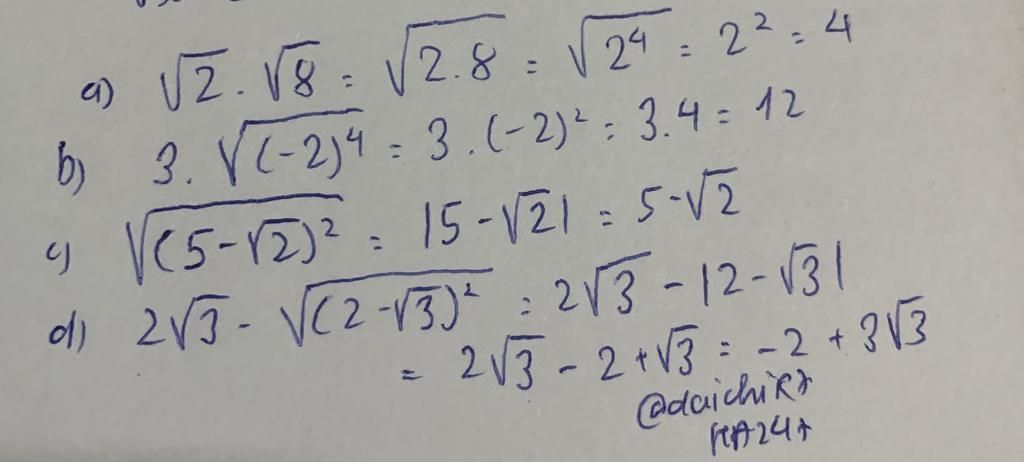 a) √2 . √8 = √2.8 = √2⁴ = 2² = 4
b) 3. √(-2)⁴ = 3.(-2)² = 3.4 = 12
c) √(5-√2)² = |5-√2| = 5-√2
d) 2√3 - √(2-√3)² = 2√3 - |2-√3|
= 2√3 - 2 + √3 = -2 + 3√3
@daichi